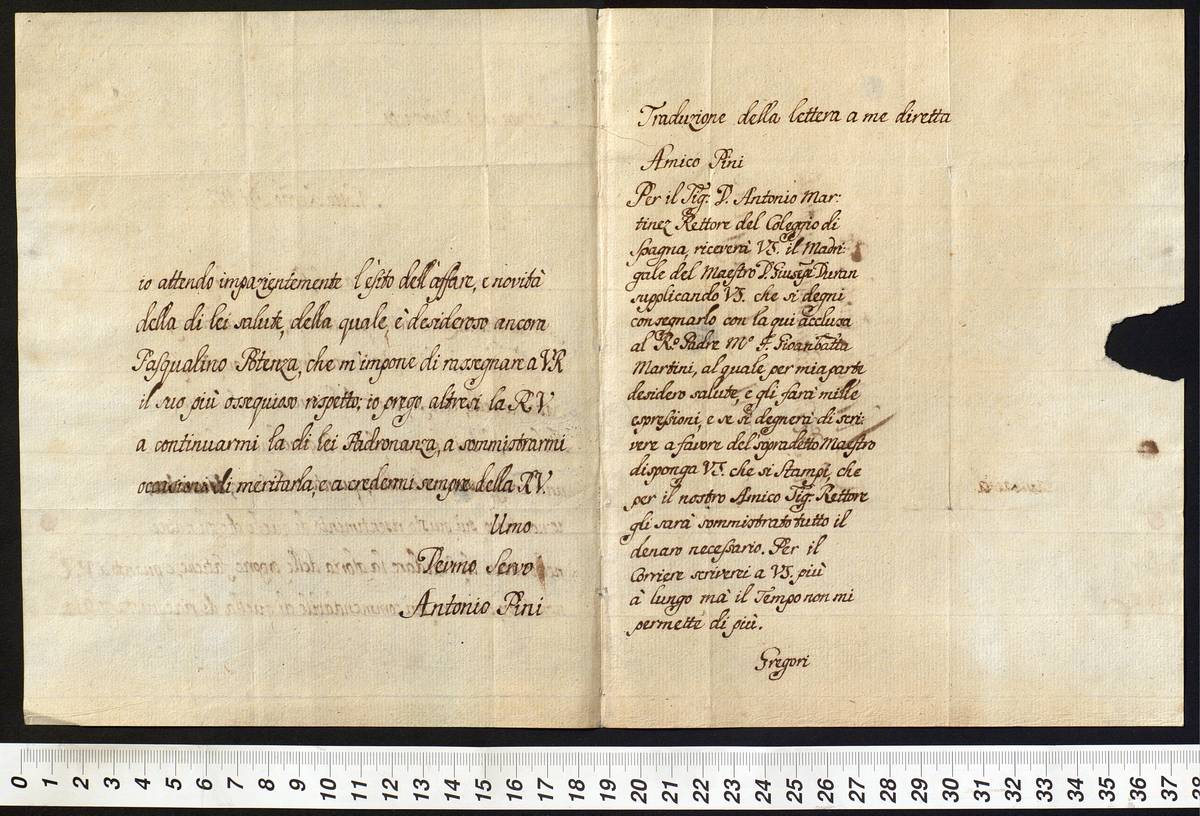 io attendo impazientemente l'esito dell'affare, e novità
della di lei salute, della quale, è desideroso ancora
Pasqualino Potenza, che m'impone di rassegnare a VR
il suo più ossequioso rispetto; io prego altresì la R.V.
a continuarmi la di lei Padronanza, a somministrarmi
occasioni di meritarla, e a credermi sempre della R.V.
Umo
Devmo Servo
Antonio Pini
Traduzione della lettera a me diretta
Amico Pini
Per il Sig. D. Antonio Mar:
tinez Rettore del Coleggio di
Spagna, riceverà VS. il Madri:
gale del Maestro D. Giusepe Duran
supplicando VS. che si degni
consegnarlo con la qui acclusa
al Ro. Padre Mo. F. Gioanbatta
Martini, al quale per mia parte
desidero salute, e gli farà mille
espressioni, e se si degnerà di scri:
vere a favore del sopradetto Maestro
disponga VS. che si Stampi, che
per il nostro Amico Sig. Rettore
gli sarà somministrato tutto il
denaro necessario. Per il
Corriere scriverei a VS. più
à lungo mà il Tempo non mi
permette di più.
Gregori
0 1 2 3 4 5 6 7 8 9 10 11 12 13 14 15 16 17 18 19 20 21 22 23 24 25 26 27 28 29 30 31 32 33 34 35 36 37 38